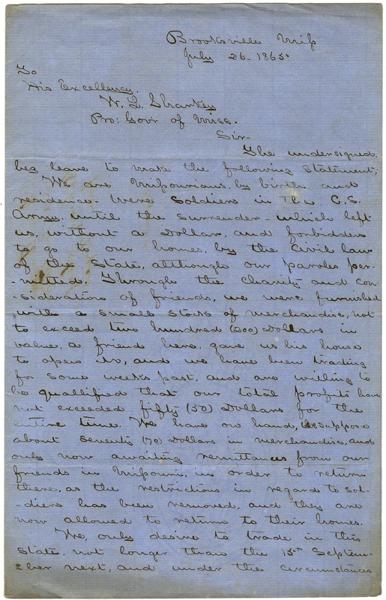 Brooksville Miss
July 26. 1865.
To
His Excellency.
W. L. Sharkey
Pro: Govr of Miss.
Sir.
The undersigned,
beg leave to make the following statement;
We are Missourians, by birth and
residence. Were Soldiers in the C.S.
Army, until the surrender - which left
us, without a Dollar, and forbidden
to go to our homes, by the Civil law
of the State, although our paroles per-
-mitted. Through the charity and con
-sideration of friends, we were furnished
with a small stock of merchandise, not
to exceed two hundred (200) Dollars in
value, a friend here, gave us his house
to open in, and we have been trading
for some weeks past, and are willing to
be quallified that our total profits have
not exceeded fifty (50) Dollars for the
entire time. We have on hand, we suppose
about Seventy (70) Dollars in merchandise, and
only now awaiting remittances from our
friends in Missouri, in order to return
there, as the restrictions in regard to Sol-
-diers has been removed, and they are
now allowed to return to their homes.
We, only desire to trade in this
State, not longer than the 15th Septem-
-ber next, and under the circumstances